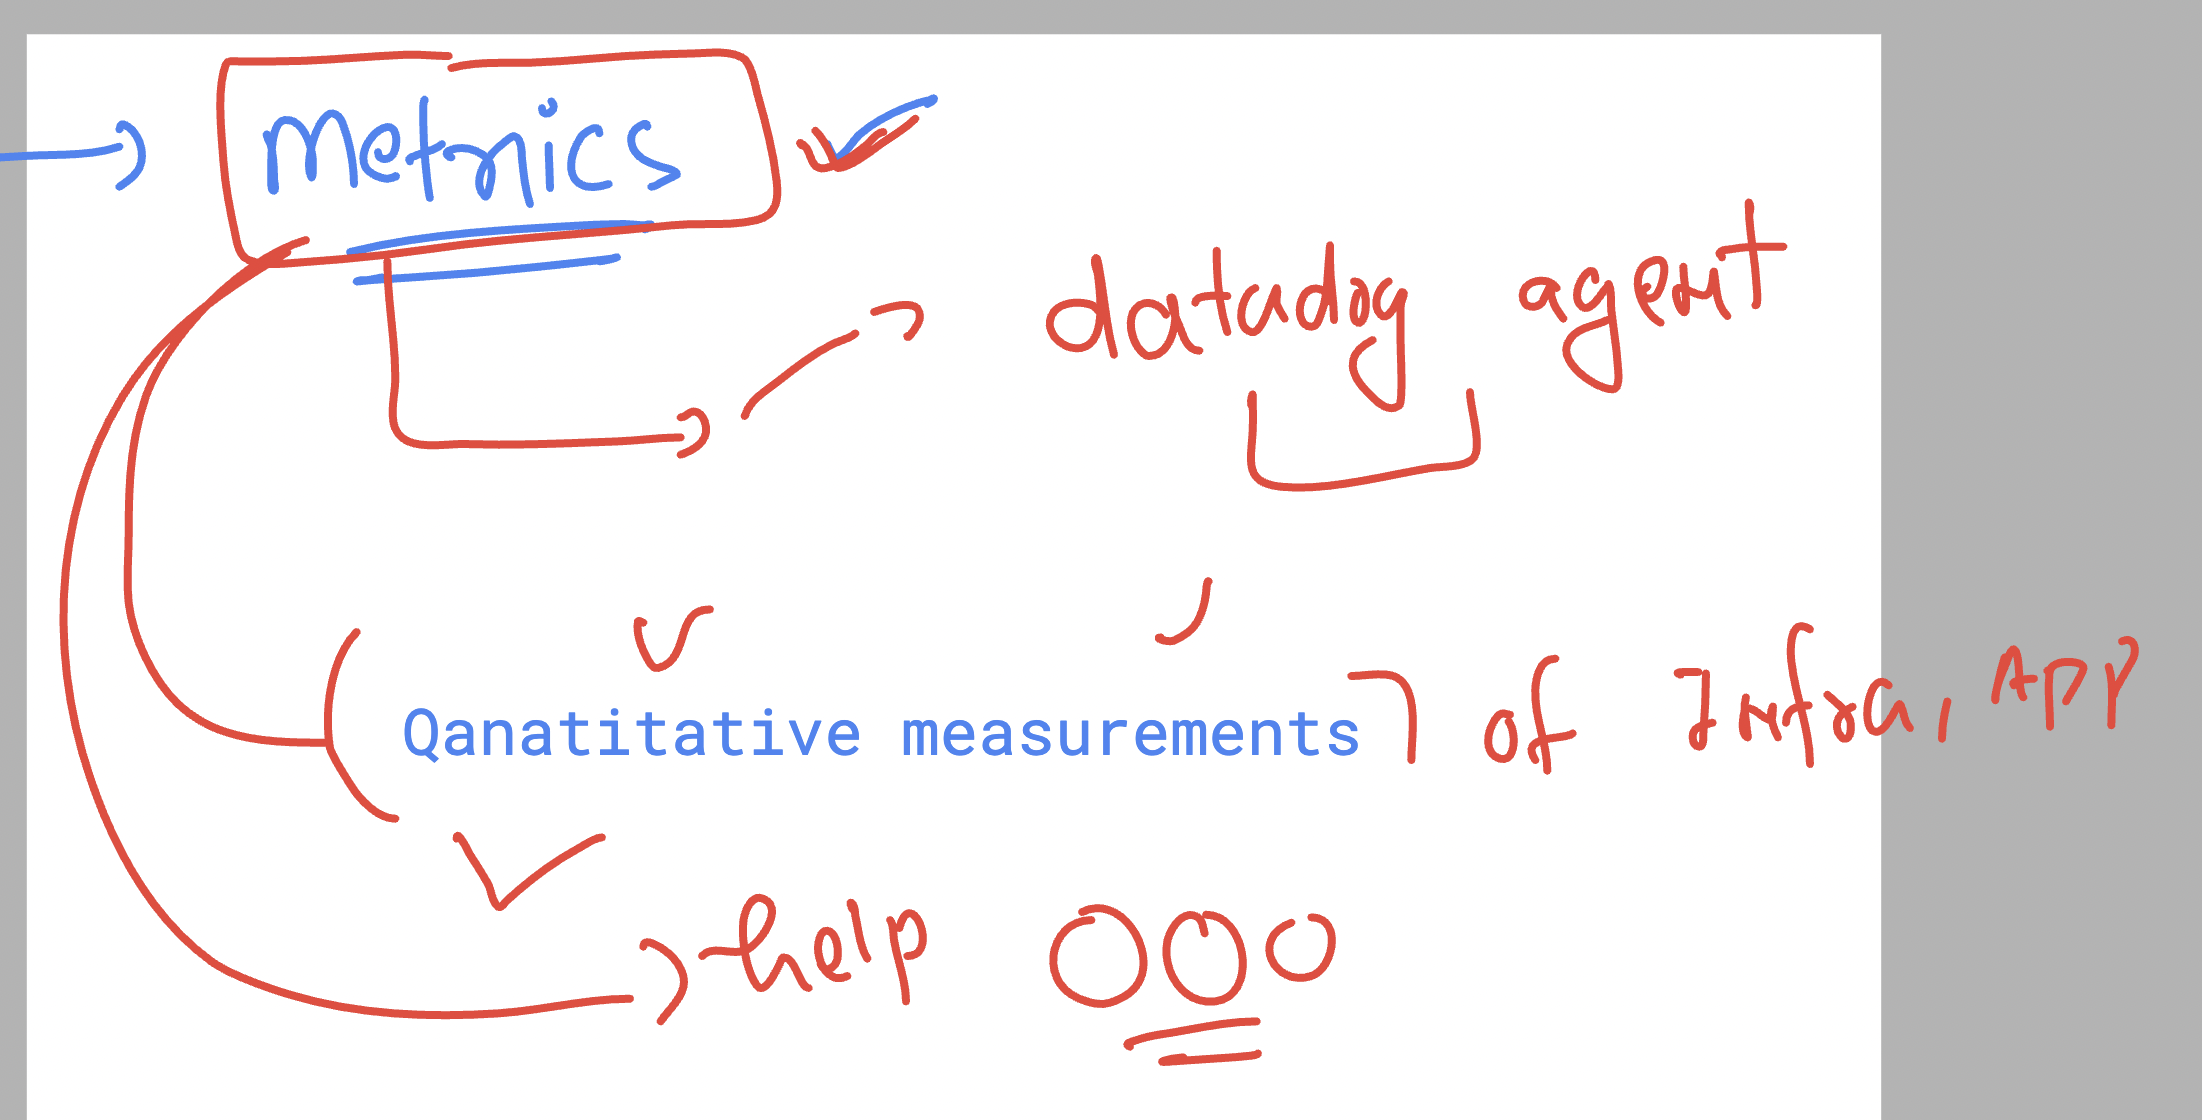 Metrics
datadog agent
Qanatitative measurements of Infra, App
help